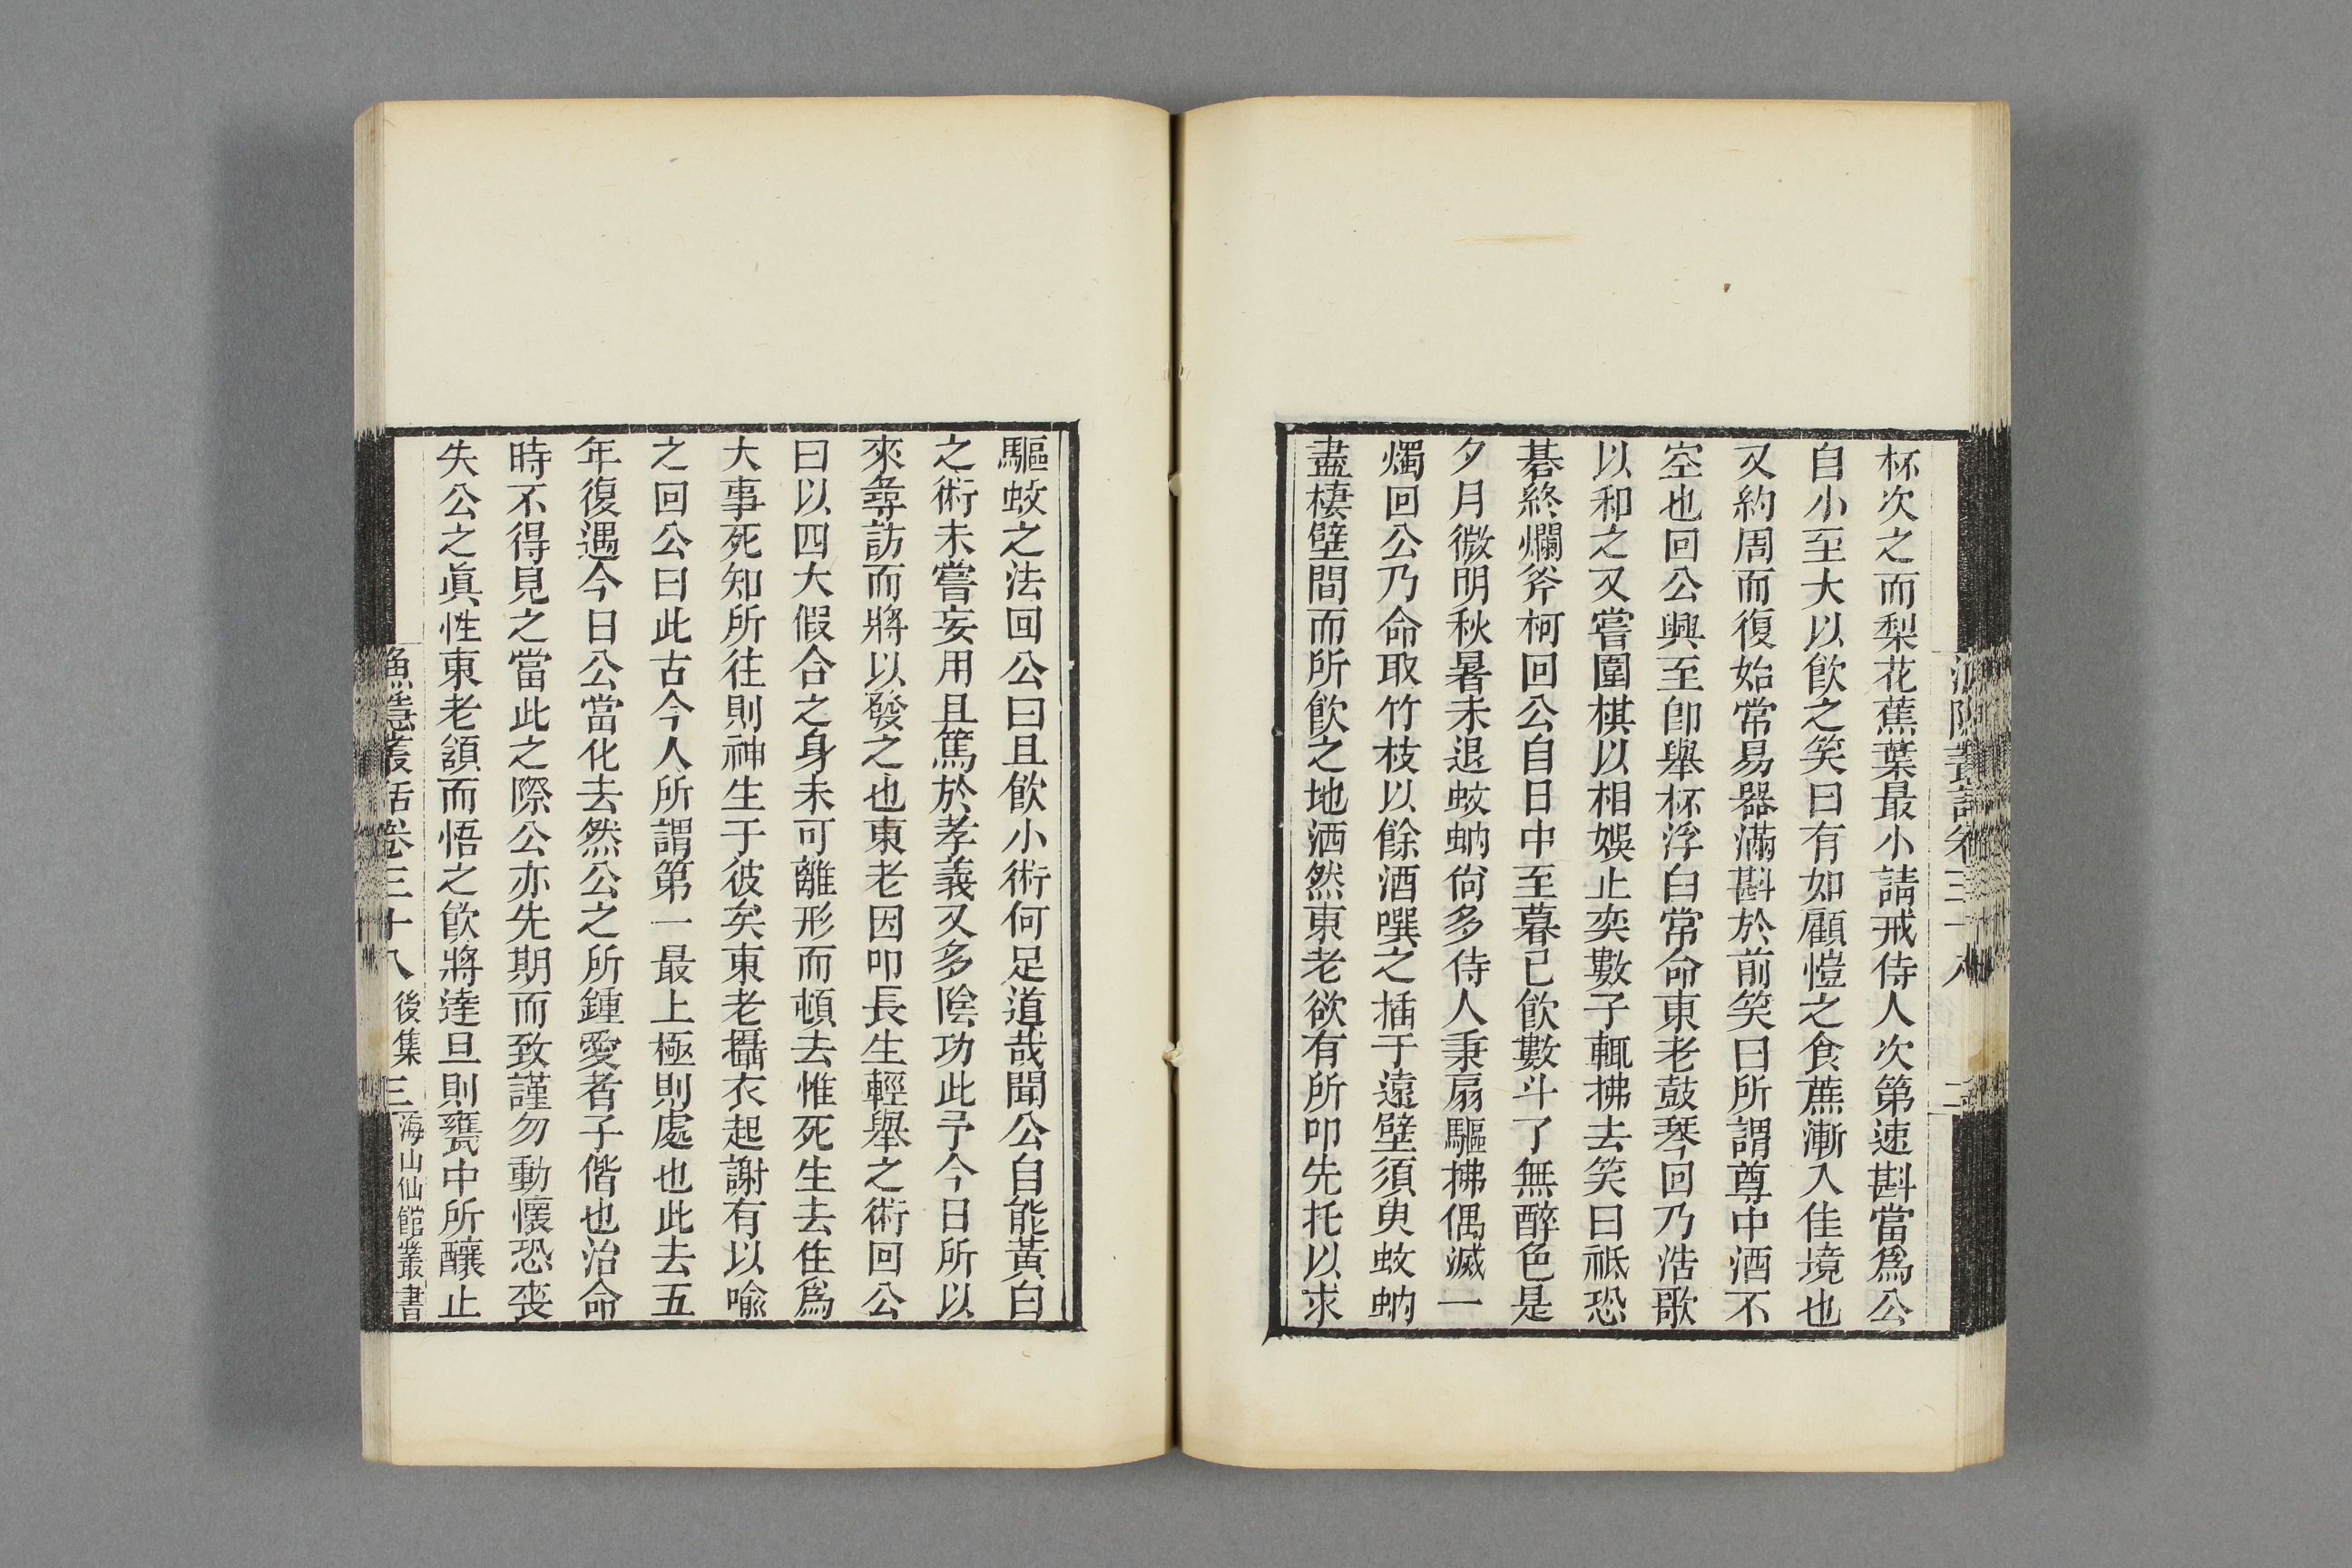 杯次之而梨花蕉葉最小請戒侍人次第速斟當爲公
自小至大以飮之笑曰有如顧愷之食蔗漸入佳境也
又約周而復始常易器滿斟於前笑曰所謂尊中酒不
空也回公興至卽舉杯浮白常命東老鼓琴回乃浩歌
以和之又嘗圍棋以相娛止奕數子輒拂去笑曰祗恐
碁終爛斧柯回公自日中至暮已飮數斗了無醉色是
夕月微明秋暑未退蚊蚋尙多侍人秉扇驅拂偶滅一
燭回公乃命取竹枝以餘酒噀之插于遠壁須臾蚊蚋
盡棲壁間而所飮之地洒然東老欲有所叩先托以求
驅蚊之法回公曰且飮小術何足道哉聞公自能黃白
之術未嘗妄用且篤於孝義又多陰功此予今日所以
來尋訪而將以發之也東老因叩長生輕舉之術回公
曰以四大假合之身未可離形而頓去惟死生去住爲
大事死知所往則神生于彼矣東老攝衣起謝有以喻
之回公曰此古今人所謂第一最上極則處也此去五
年復遇今日公當化去然公之所鍾愛者子偕也治命
時不得見之當此之際公亦先期而致謹勿動懷恐喪
失公之眞性東老頷而悟之飮將達旦則甕中所釀止
漁隱叢話卷三十八 後集 三 海山仙館叢書